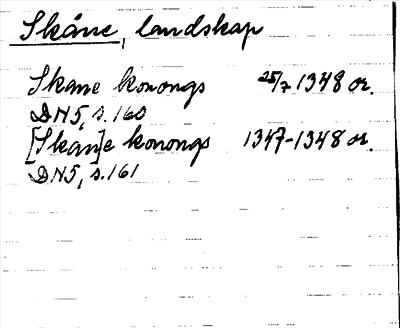 Skåne, landskap
Skane konongs 25/7 1348 or.
DN5, s.160
[Skan]e konongs 1347-1348 or.
DN5, s.161